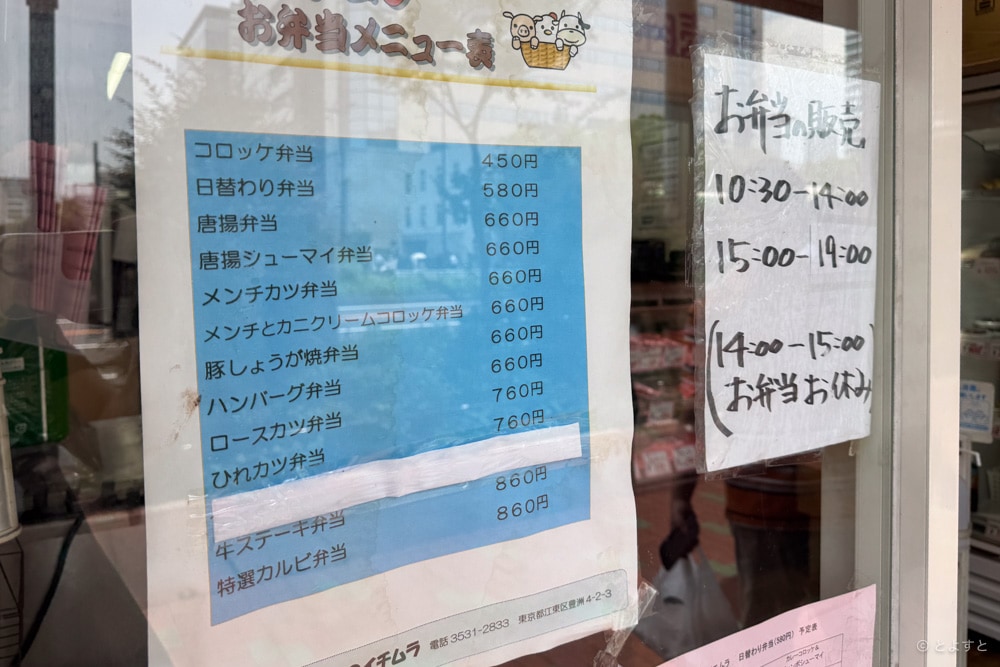 お弁当メニュー表
コロッケ弁当 450円
日替わり弁当 580円
唐揚弁当 660円
唐揚シューマイ弁当 660円
メンチカツ弁当 660円
メンチとカニクリームコロッケ弁当 660円
豚しょうが焼弁当 660円
ハンバーグ弁当 660円
ロースカツ弁当 760円
ひれカツ弁当 760円
牛ステーキ弁当 860円
特選カルビ弁当 860円
イチムラ 電話 3531-2833 東京都江東区豊洲 4-2-3
お弁当の販売
10:30-14:00
15:00-19:00
(14:00-15:00
お弁当お休み)
ムラ 日替わり弁当(580円) 予定表
カレーコロッケ&
シューマイ
© とよすと